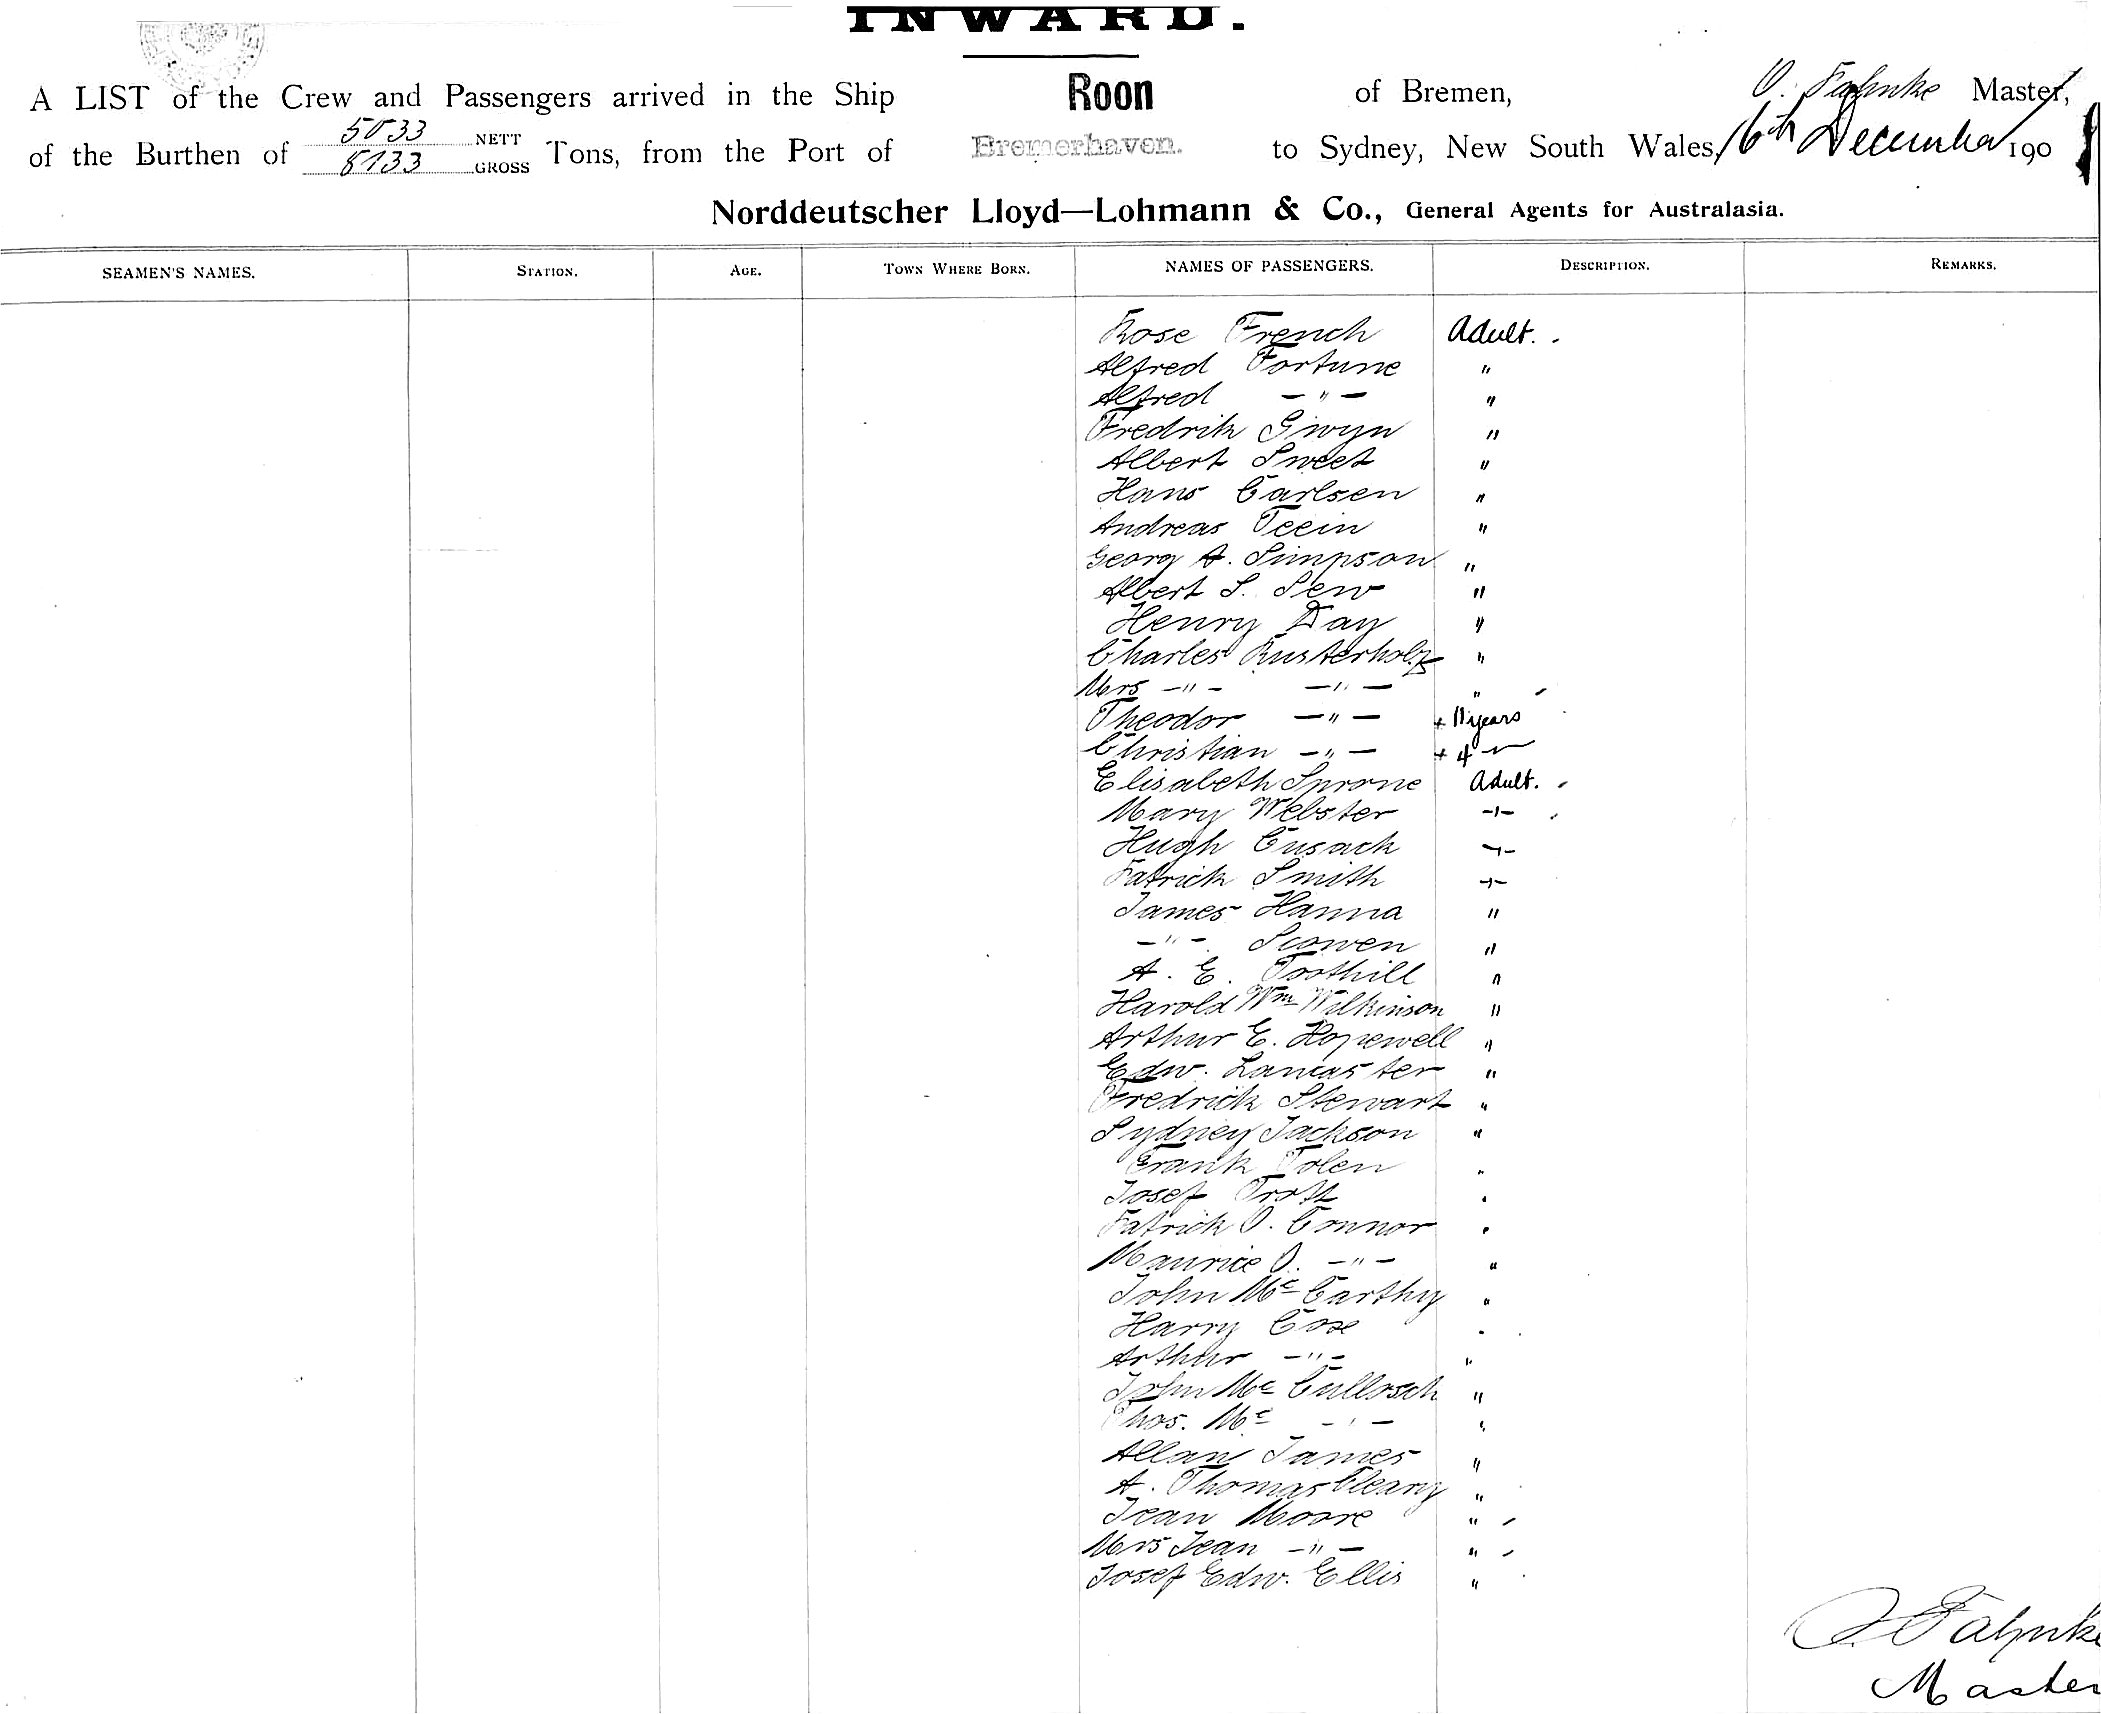 INWARD.
A LIST of the Crew and Passengers arrived in the Ship Roon of Bremen, O. Fahnke Master,
of the Burthen of 5033 NETT 8133 GROSS Tons, from the Port of Bremerhaven. to Sydney, New South Wales, 16th December 190
Norddeutscher Lloyd—Lohmann & Co., General Agents for Australasia.
SEAMEN'S NAMES. STATION. AGE. TOWN WHERE BORN. NAMES OF PASSENGERS. DESCRIPTION. REMARKS.
Rose French Adult.
Alfred Fortune "
Alfred — " — "
Fredrik Giwyn "
Albert Sweet "
Hans Carlsen "
Andreas Teein "
Georg A. Simpson "
Albert S. Sew "
Henry Day "
Charles Rusterholz "
Mrs — " — — " — "
Theodor — " — + 11 years
Christian — " — + 4 "
Elisabeth Sprone Adult.
Mary Webster -"-
Hugh Cusack -"-
Patrick Smith -"-
James Hanna "
— " — Scowen "
A. E. Toothill "
Harold Wm Wilkinson "
Arthur E. Hopewell "
Edw. Lancaster "
Fredrick Stewart "
Sydney Jackson "
Frank Tolen "
Josef Trott "
Patrick O. Connor "
Maurice O. — " — "
John Mc Carthy "
Harry Coxe "
Arthur — " — "
John Mc Cullosch "
Thos. Mc — " — "
Allan James "
A. Thomas Cleary "
Jean Moore "
Mrs Jean — " — "
Josef Edw. Ellis "
O Fahnke
Master